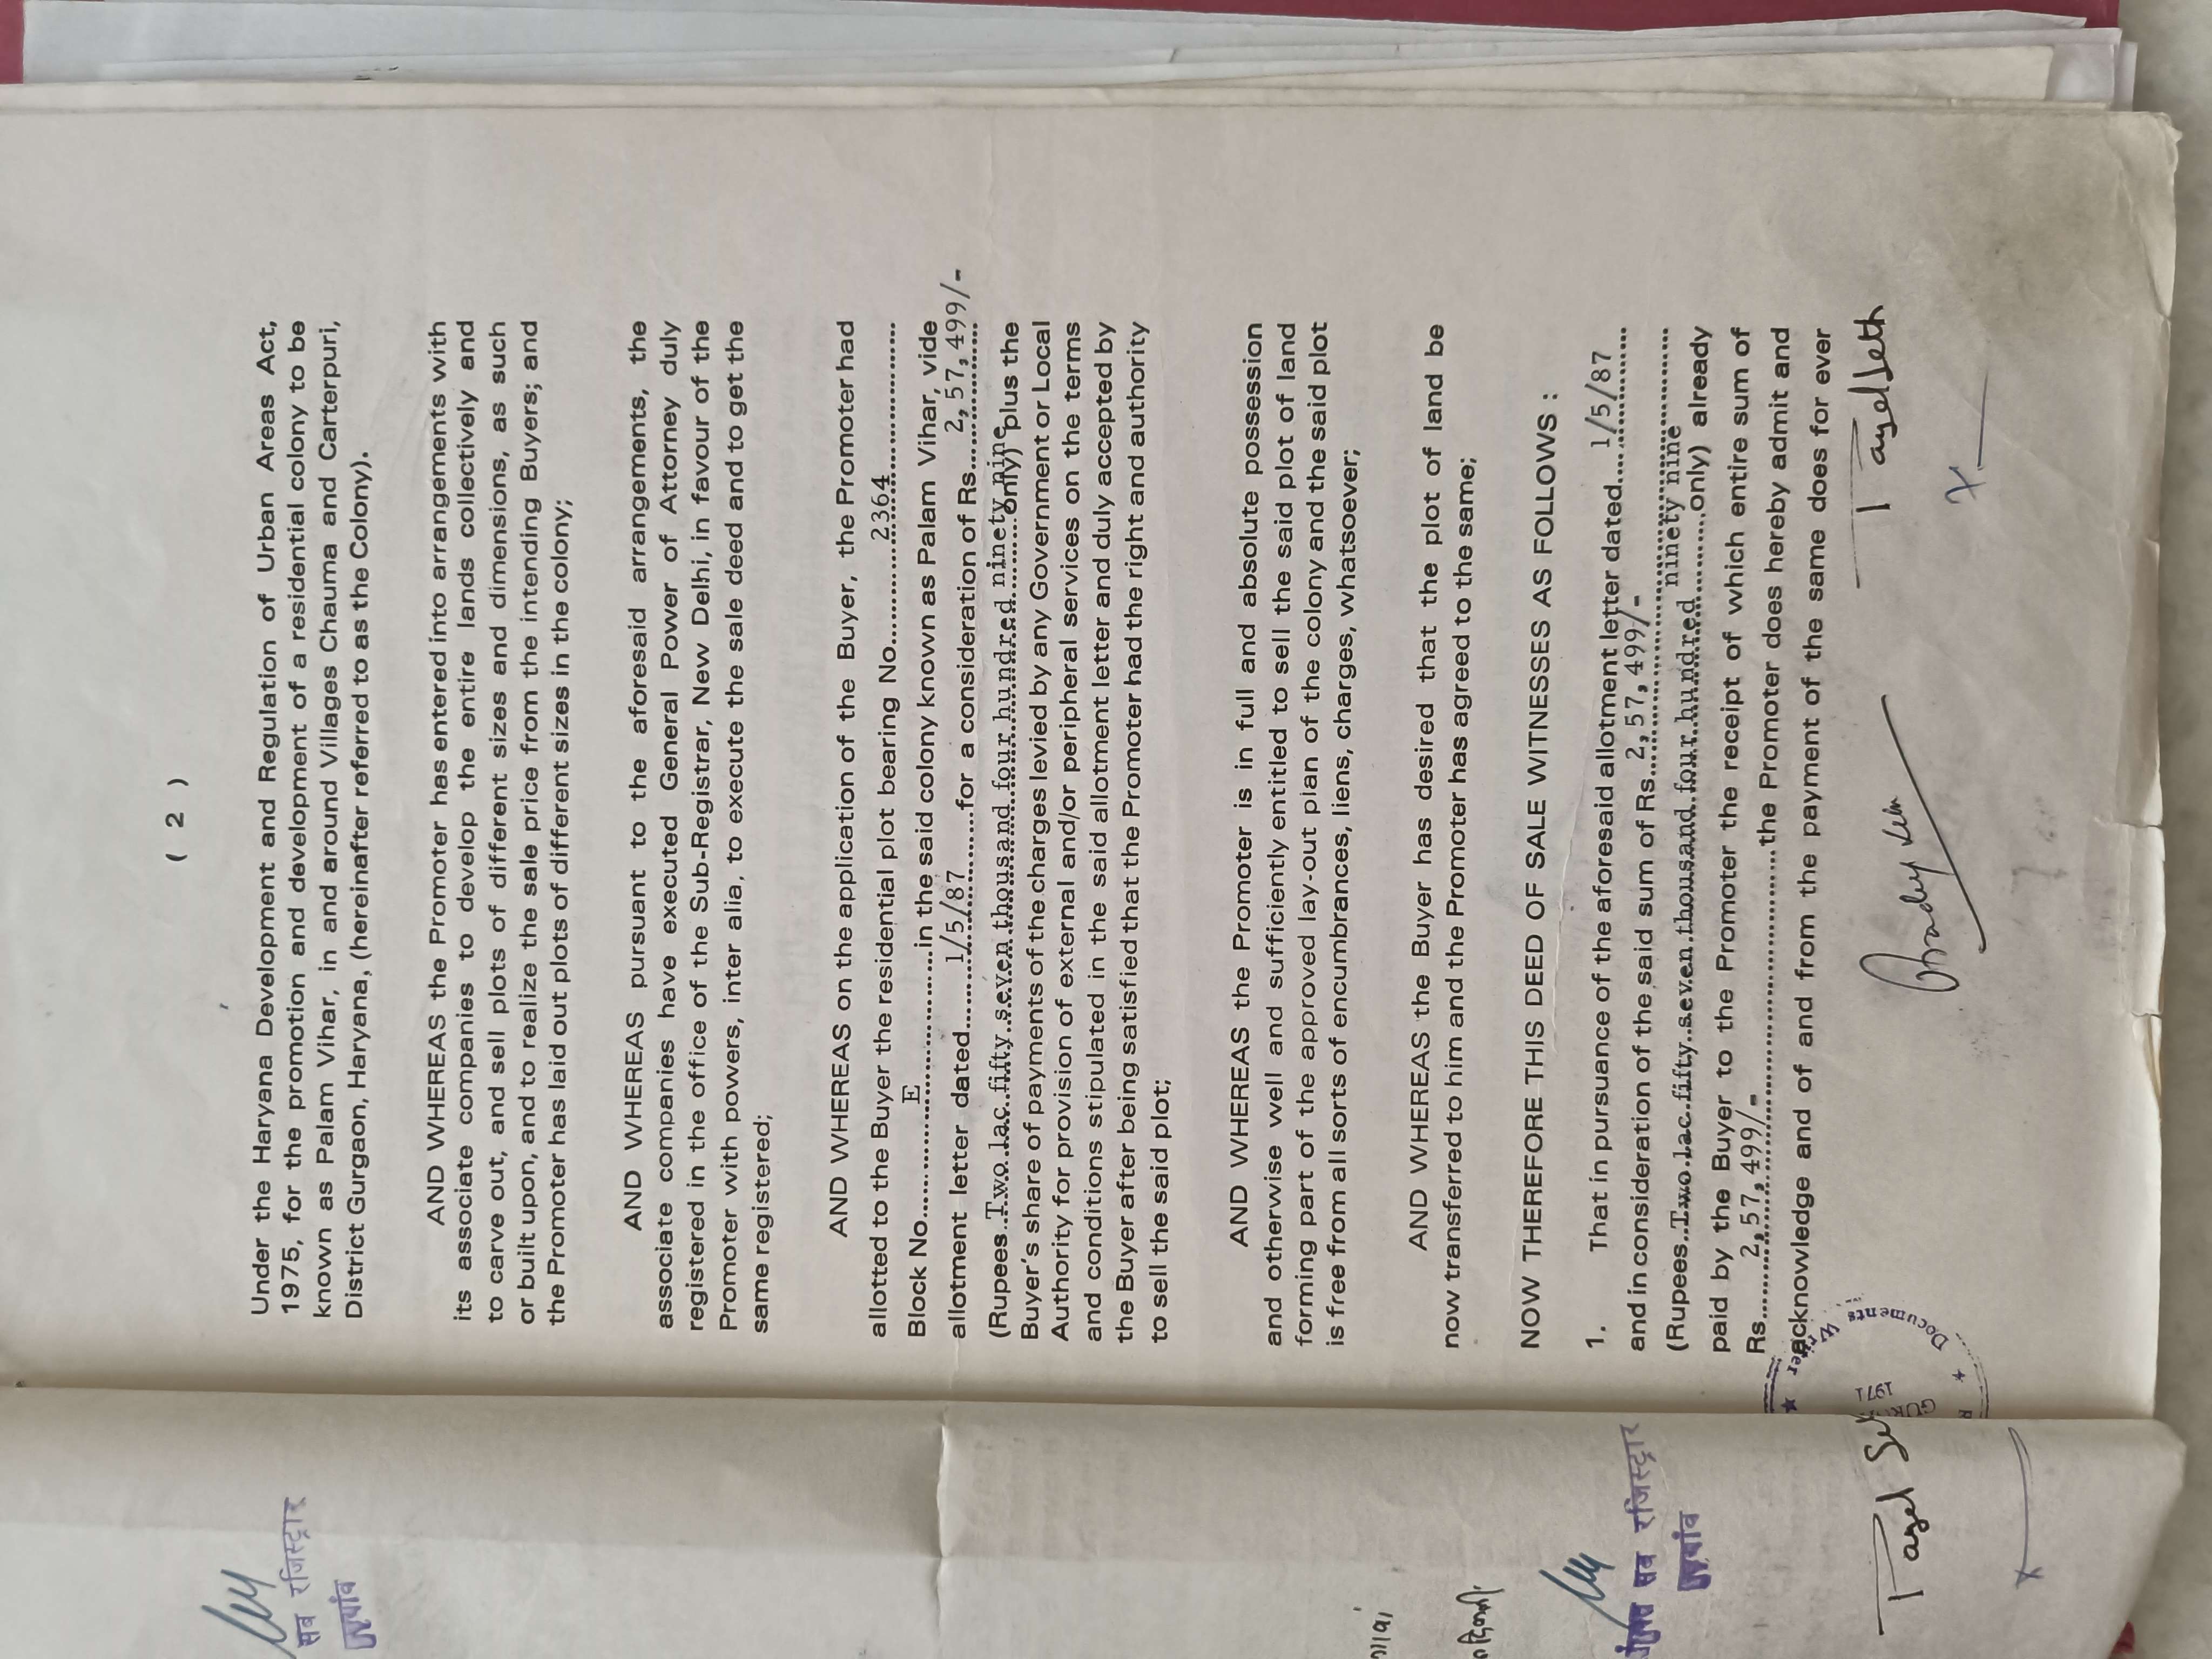 ( 2 )
Under the Haryana Development and Regulation of Urban Areas Act,
1975, for the promotion and development of a residential colony to be
known as Palam Vihar, in and around Villages Chauma and Carterpuri,
District Gurgaon, Haryana, (hereinafter referred to as the Colony).
AND WHEREAS the Promoter has entered into arrangements with
its associate companies to develop the entire lands collectively and
to carve out, and sell plots of different sizes and dimensions, as such
or built upon, and to realize the sale price from the intending Buyers; and
the Promoter has laid out plots of different sizes in the colony;
AND WHEREAS pursuant to the aforesaid arrangements, the
associate companies have executed General Power of Attorney duly
registered in the office of the Sub-Registrar, New Delhi, in favour of the
Promoter with powers, inter alia, to execute the sale deed and to get the
same registered;
AND WHEREAS on the application of the Buyer, the Promoter had
allotted to the Buyer the residential plot bearing No. 2364
Block No. E in the said colony known as Palam Vihar, vide
allotment letter dated 1/5/87 for a consideration of Rs. 2,57,499/-
(Rupees Two lac fifty seven thousand four hundred ninety nine only) plus the
Buyer's share of payments of the charges levied by any Government or Local
Authority for provision of external and/or peripheral services on the terms
and conditions stipulated in the said allotment letter and duly accepted by
the Buyer after being satisfied that the Promoter had the right and authority
to sell the said plot;
AND WHEREAS the Promoter is in full and absolute possession
and otherwise well and sufficiently entitled to sell the said plot of land
forming part of the approved lay-out plan of the colony and the said plot
is free from all sorts of encumbrances, liens, charges, whatsoever;
AND WHEREAS the Buyer has desired that the plot of land be
now transferred to him and the Promoter has agreed to the same;
NOW THEREFORE THIS DEED OF SALE WITNESSES AS FOLLOWS :
1. That in pursuance of the aforesaid allotment letter dated 1/5/87
and in consideration of the said sum of Rs. 2,57,499/-
(Rupees Two lac fifty seven thousand four hundred ninety nine only) already
paid by the Buyer to the Promoter the receipt of which entire sum of
Rs. 2,57,499/- the Promoter does hereby admit and
acknowledge and of and from the payment of the same does for ever
Documents Writer
1971
सब रजिस्ट्रार
सब रजिस्ट्रार